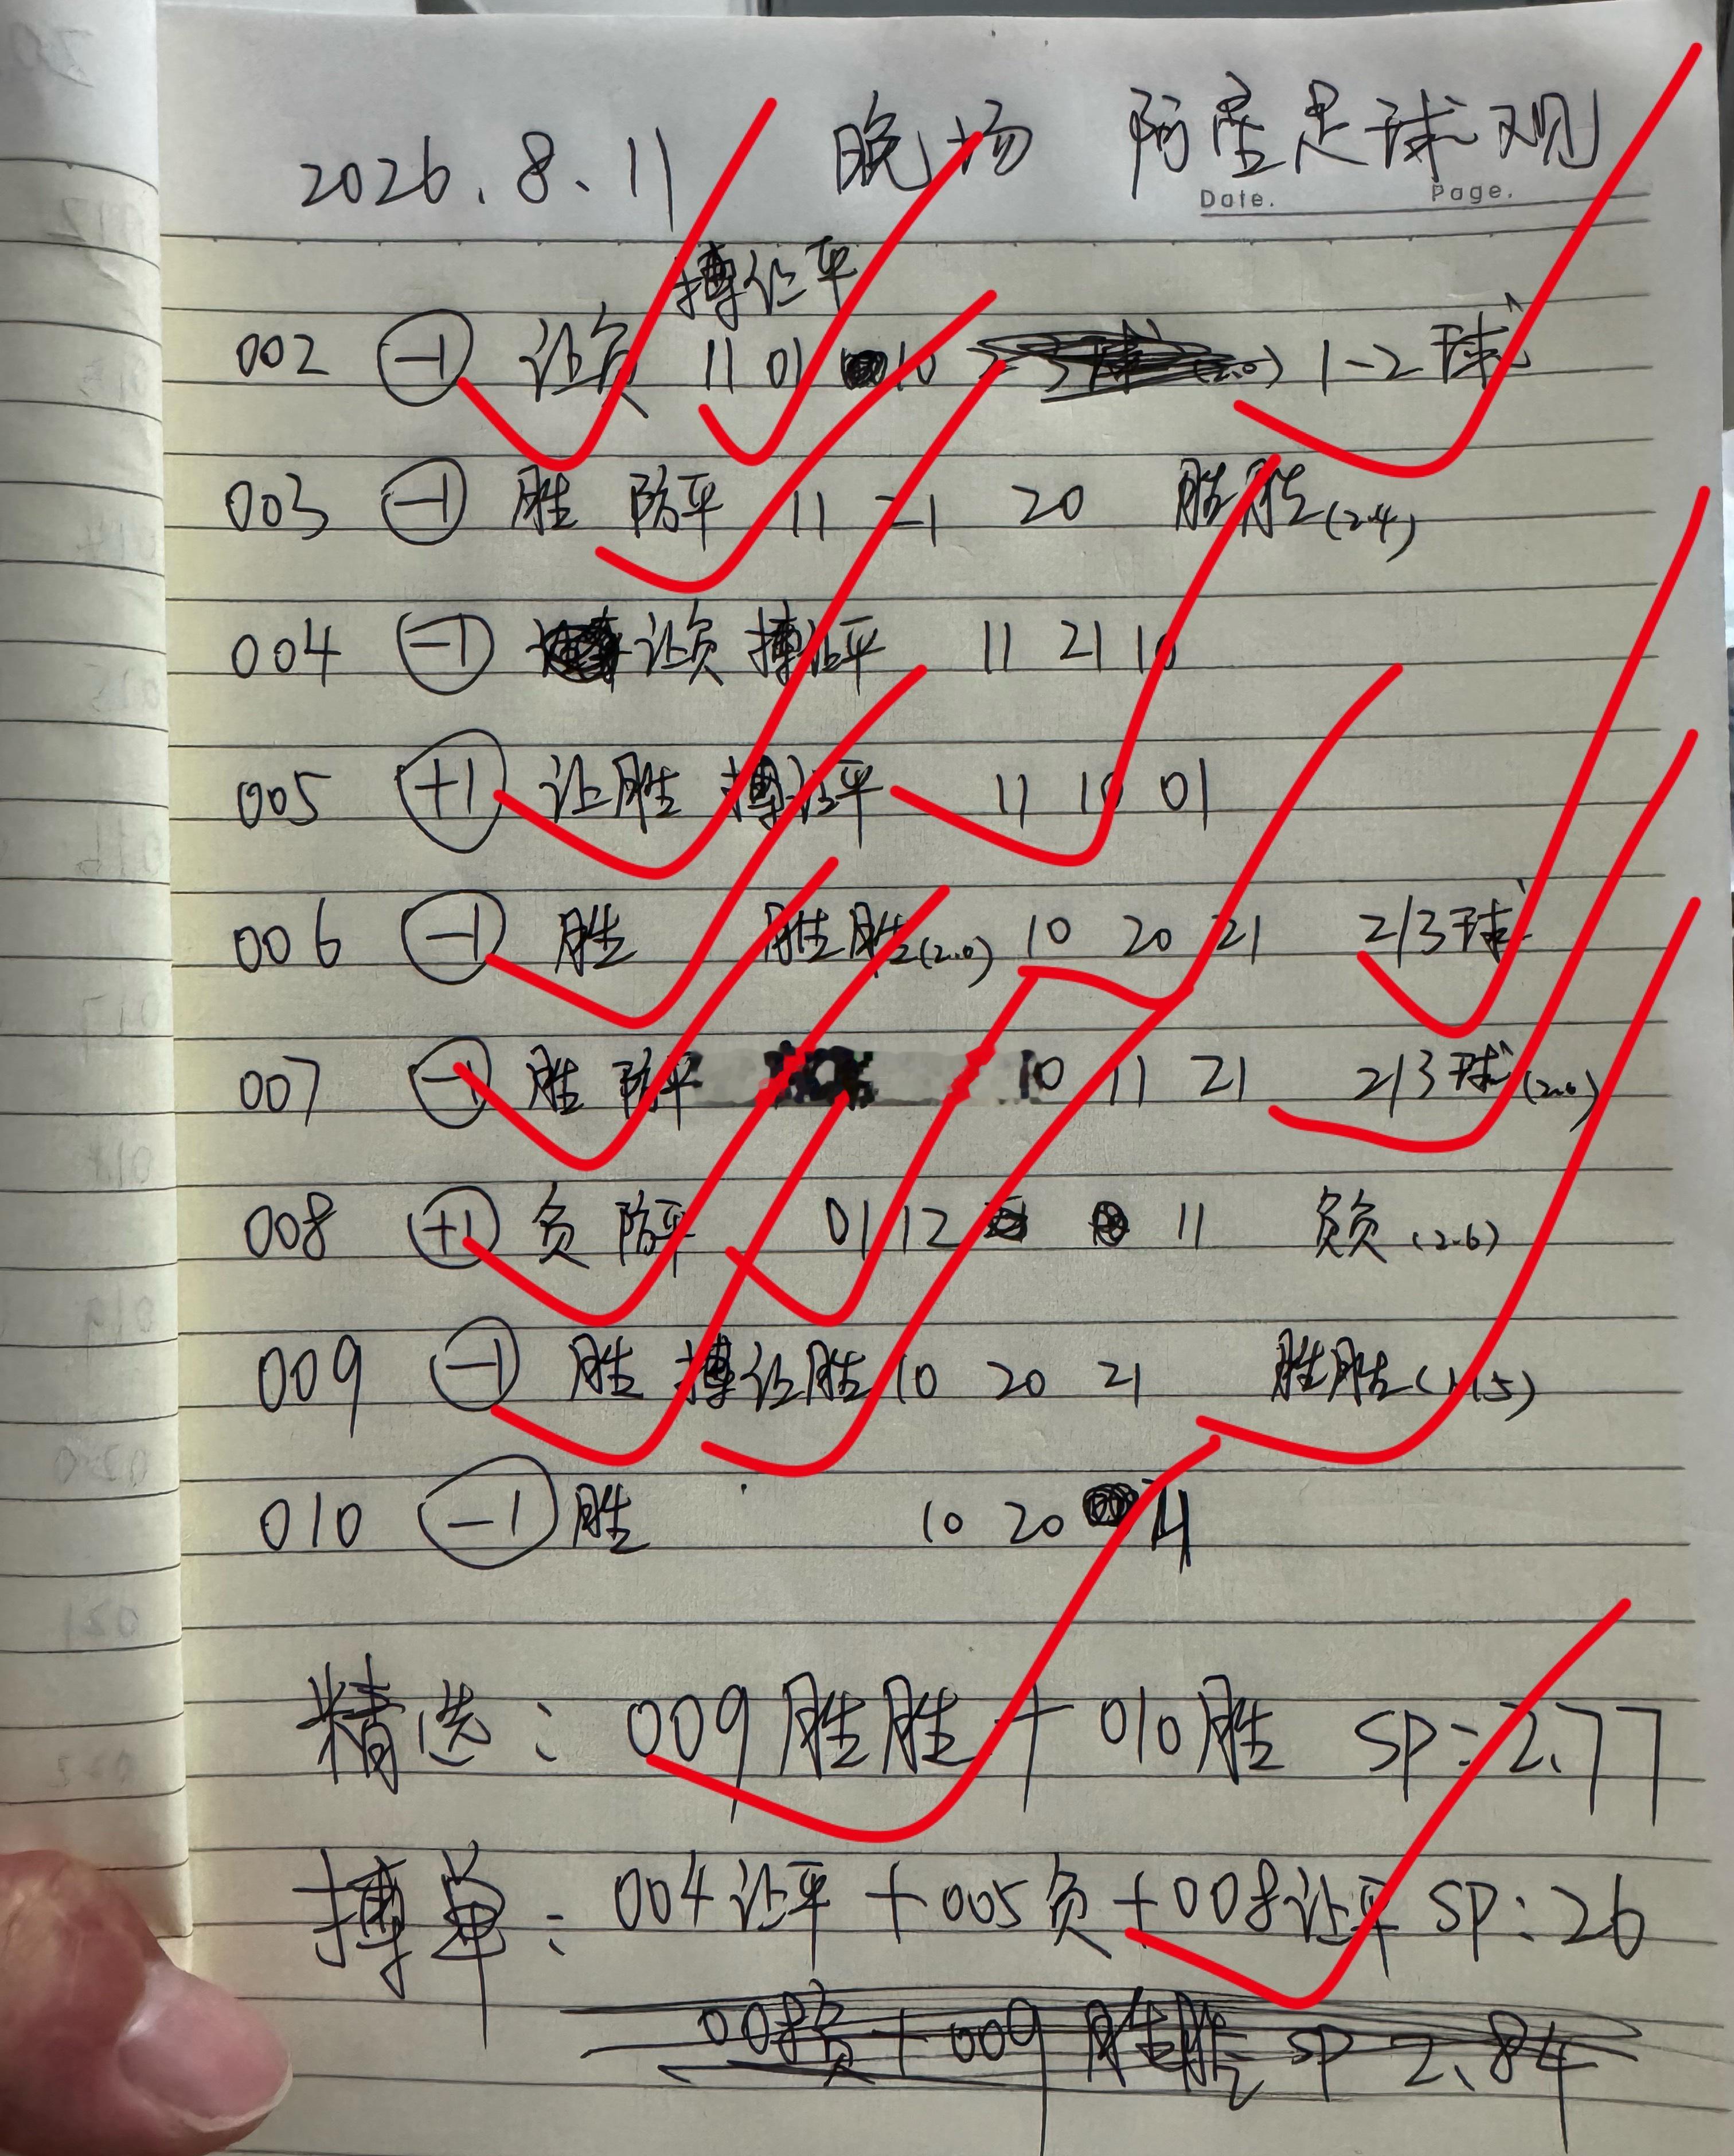 2026.8.11 晚场 阿星足球观
Date. Page.
搏让平
002 -1 让负 11 01 10 1-2球
003 -1 胜 防平 11 21 20 胜胜(2.4)
004 -1 让负 搏让平 11 21 10
005 +1 让胜 搏让平 11 10 01
006 -1 胜 胜胜(2.0) 10 20 21 2/3球
007 -1 胜 防平 10 11 21 2/3球(2.0)
008 +1 负 防平 01 12 11 负负(2.6)
009 -1 胜 搏让胜 10 20 21 胜胜
010 -1 胜 10 20
精选: 009胜胜+010胜 SP:2.77
搏单: 004让平+005负+008让平 SP:26
008负+009胜胜 SP 2.84